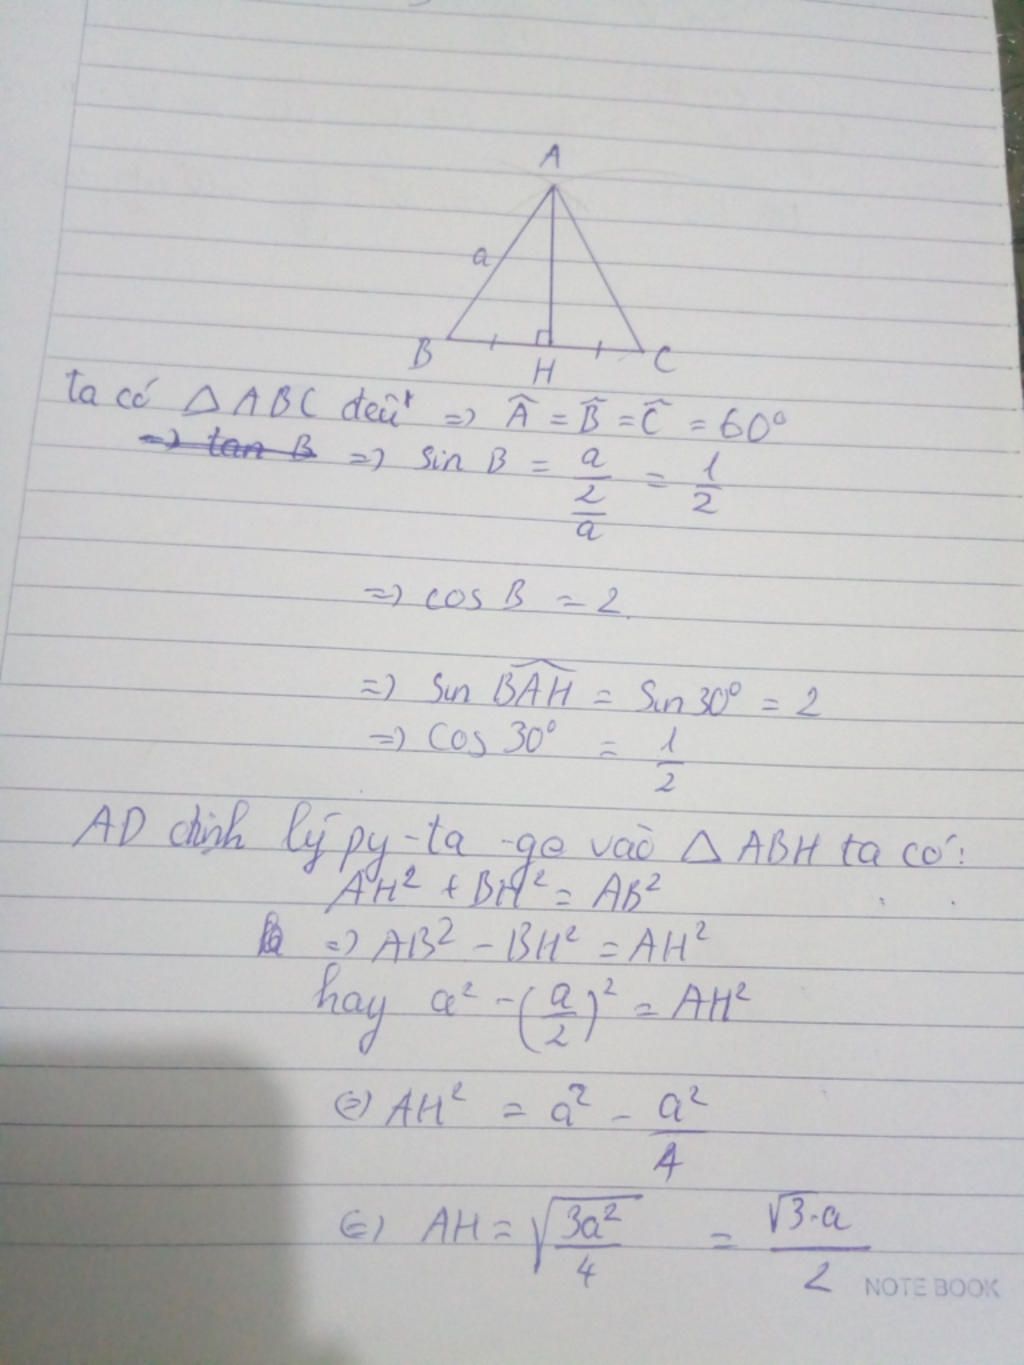 A
a
B
H
C
ta có △ABC đều => Â = B̂ = Ĉ = 60°
=> tan B => sin B = a/2/a = 1/2
=> cos B = 2
=> Sin BAH = Sin 30° = 2
=> Cos 30° = 1/2
AD định lý py-ta-go vào △ ABH ta có:
AH² + BH² = AB²
=> AB² - BH² = AH²
hay a² - (a/2)² = AH²
(=) AH² = a² - a²/4
(=) AH = √(3a²/4) = √3.a/2
NOTE BOOK